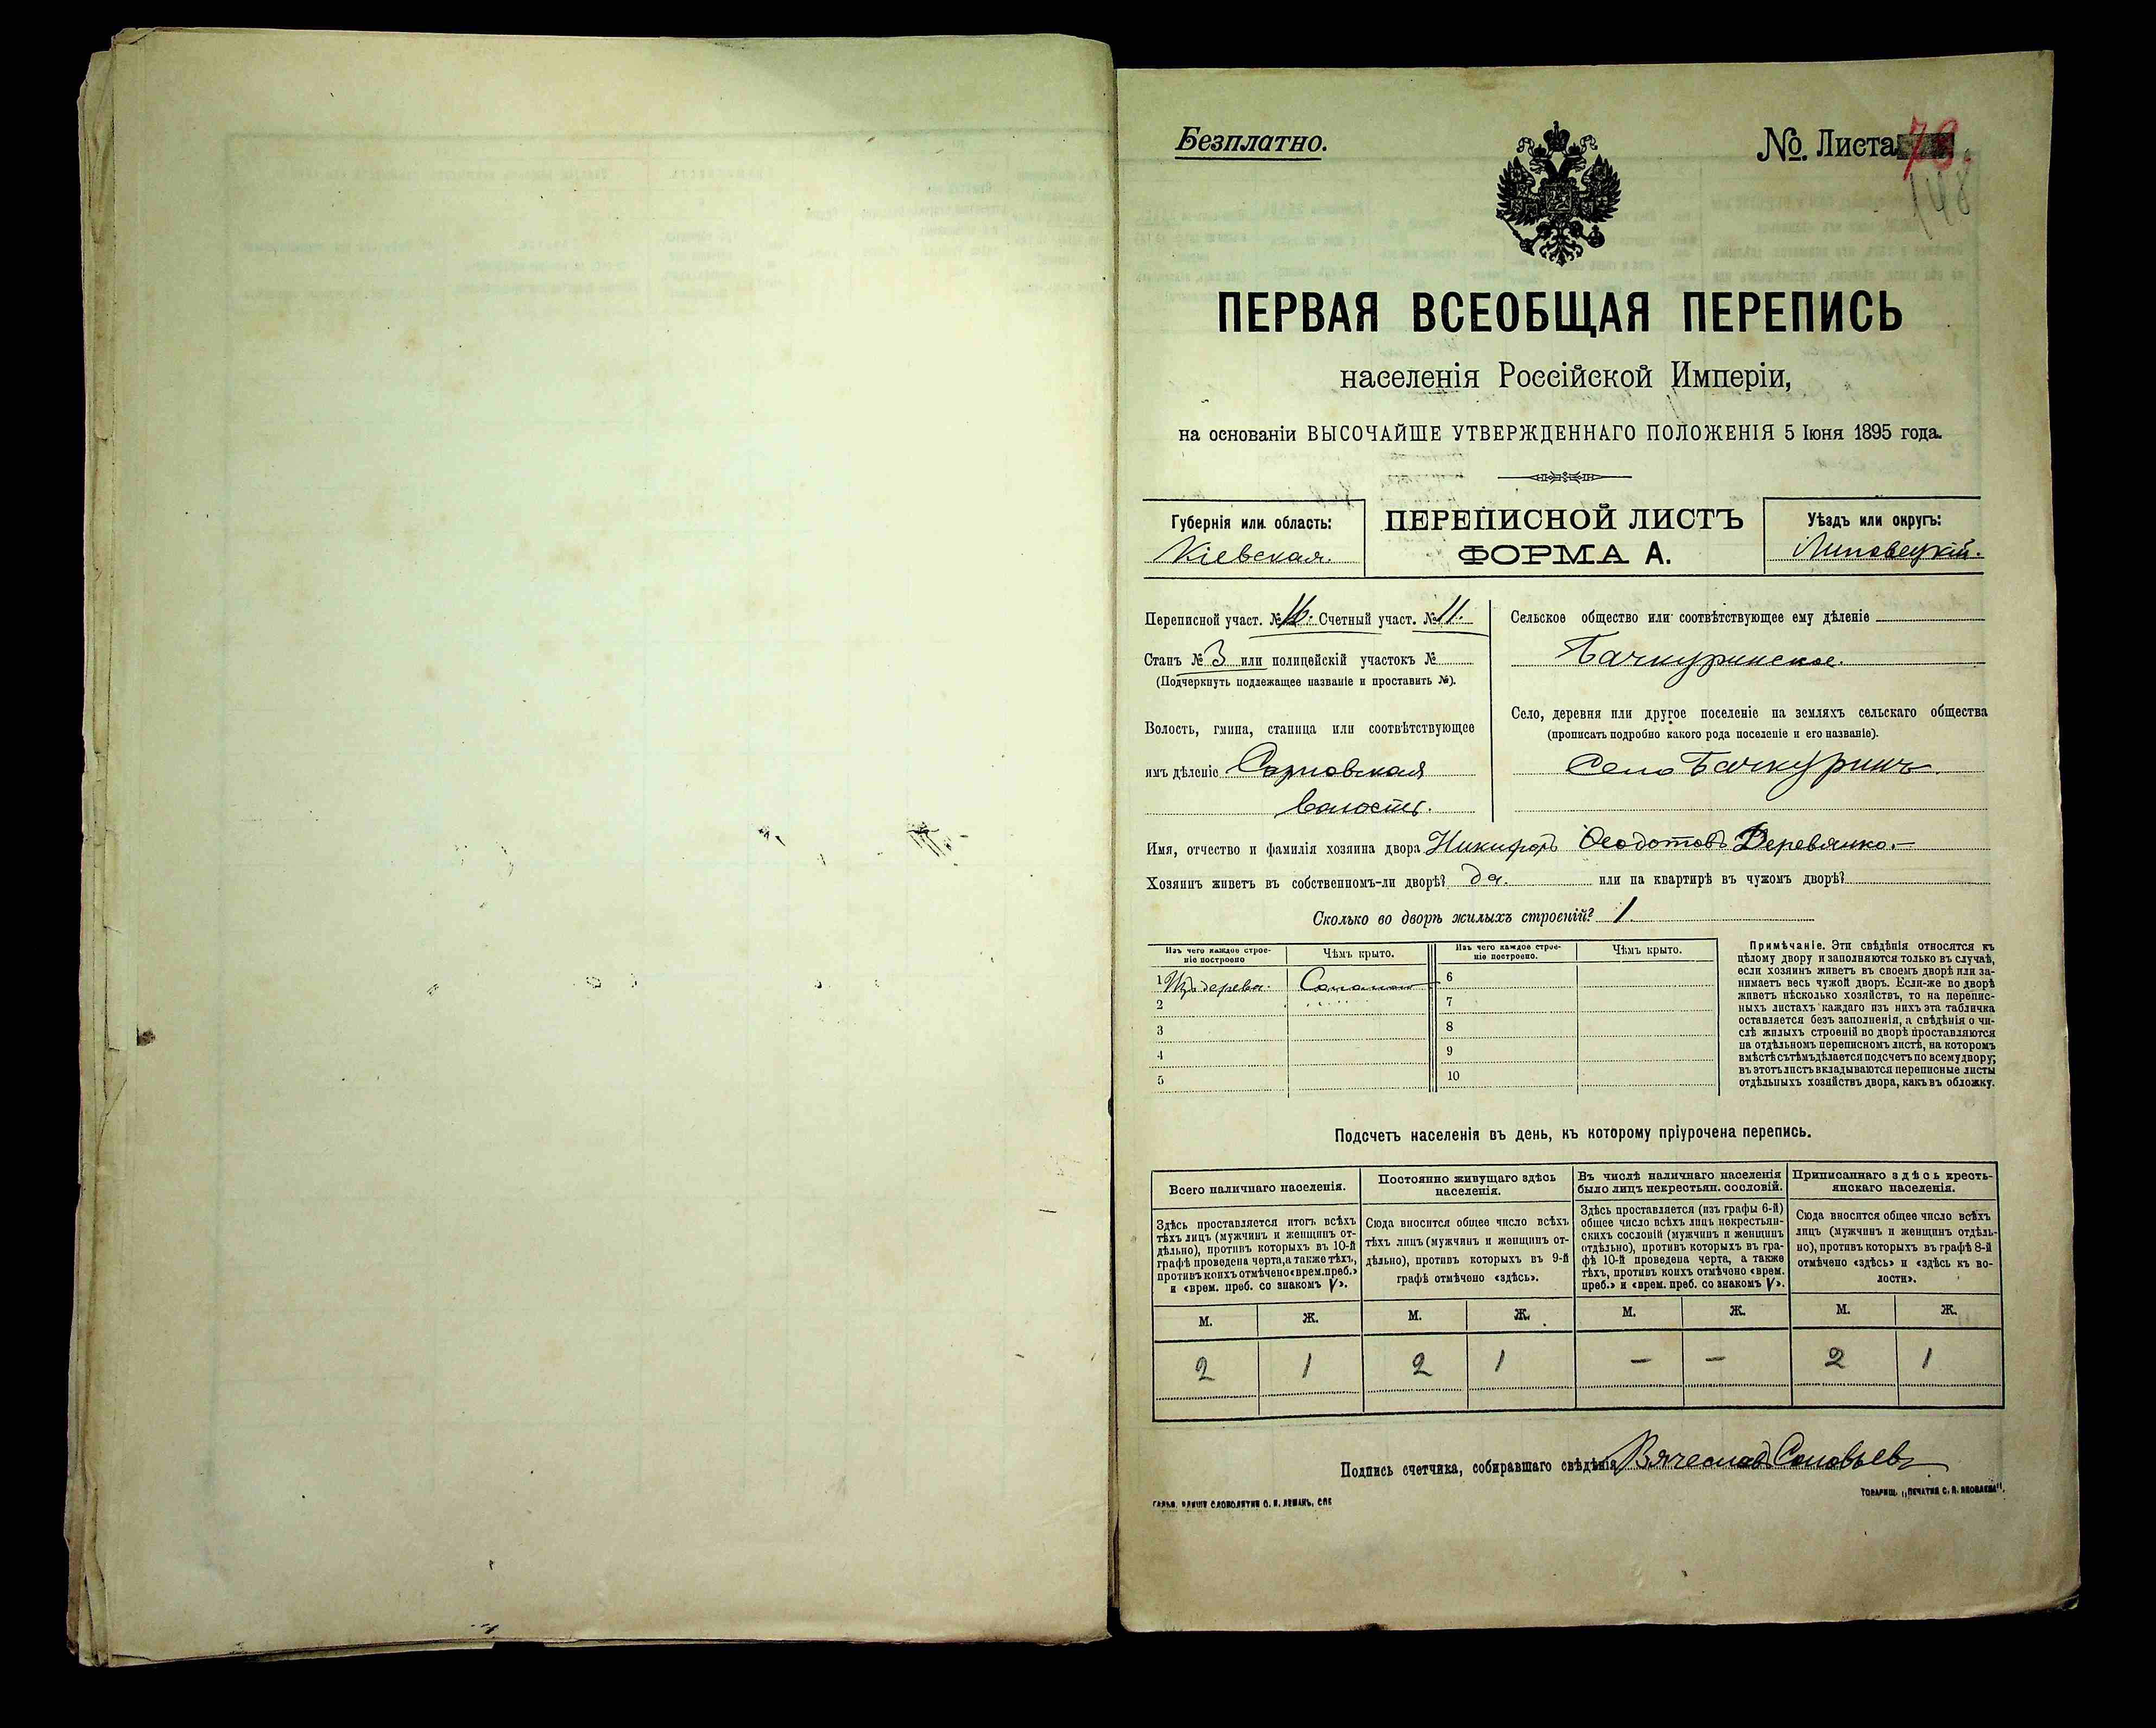 Безплатно.
№. Листа 73.
148
ПЕРВАЯ ВСЕОБЩАЯ ПЕРЕПИСЬ
населенія Россійской Имперіи,
на основаніи ВЫСОЧАЙШЕ УТВЕРЖДЕННАГО ПОЛОЖЕНІЯ 5 Іюня 1895 года.
Губернія или область:
Кіевская.
ПЕРЕПИСНОЙ ЛИСТЪ
ФОРМА А.
Уѣздъ или округъ:
Липовецкій.
Переписной участ. № 16. Счетный участ. № 11.
Станъ № 3 или полицейскій участокъ №
(Подчеркнуть подлежащее названіе и проставить №).
Волость, гмина, станица или соотвѣтствующее
имъ дѣленіе Сорновская
волость.
Сельское общество или соотвѣтствующее ему дѣленіе
Бачкуринское.
Село, деревня или другое поселеніе на земляхъ сельскаго общества
(прописать подробно какого рода поселеніе и его названіе).
Село Бачкуринъ.
Имя, отчество и фамилія хозяина двора Никифоръ Ѳеодотовъ Деревянко.
Хозяинъ живетъ въ собственномъ-ли дворѣ? да. или на квартирѣ въ чужомъ дворѣ?
Сколько во дворѣ жилыхъ строеній? 1
Изъ чего каждое строе-
ніе построено
Чѣмъ крыто.
Изъ чего каждое строе-
ніе построено.
Чѣмъ крыто.
1 Изъ дерева. Соломою 6
2 7
3 8
4 9
5 10
Примѣчаніе. Эти свѣдѣнія относятся къ
цѣлому двору и заполняются только въ случаѣ,
если хозяинъ живетъ въ своемъ дворѣ или за-
нимаетъ весь чужой дворъ. Если-же во дворѣ
живетъ нѣсколько хозяйствъ, то на перепис-
ныхъ листахъ каждаго изъ нихъ эта табличка
оставляется безъ заполненія, а свѣдѣнія о чи-
слѣ жилыхъ строеній во дворѣ проставляются
на отдѣльномъ переписномъ листѣ, на которомъ
вмѣстѣ съ тѣмъ дѣлается подсчетъ по всему двору;
въ этотъ листъ вкладываются переписные листы
отдѣльныхъ хозяйствъ двора, какъ въ обложку.
Подсчетъ населенія въ день, къ которому пріурочена перепись.
Всего наличнаго населенія.
Здѣсь проставляется итогъ всѣхъ
тѣхъ лицъ (мужчинъ и женщинъ от-
дѣльно), противъ которыхъ въ 10-й
графѣ проведена черта, а также тѣхъ,
противъ коихъ отмѣчено «врем. преб.»
и «врем. преб. со знакомъ V».
Постоянно живущаго здѣсь
населенія.
Сюда вносится общее число всѣхъ
тѣхъ лицъ (мужчинъ и женщинъ от-
дѣльно), противъ которыхъ въ 9-й
графѣ отмѣчено «здѣсь».
Въ числѣ наличнаго населенія
было лицъ некрестьян. сословій.
Здѣсь проставляется (изъ графы 6-й)
общее число всѣхъ лицъ некрестьян-
скихъ сословій (мужчинъ и женщинъ
отдѣльно), противъ которыхъ въ гра-
фѣ 10-й проведена черта, а также
тѣхъ, противъ коихъ отмѣчено «врем.
преб.» и «врем. преб. со знакомъ V».
Приписаннаго здѣсь кресть-
янскаго населенія.
Сюда вносится общее число всѣхъ
лицъ (мужчинъ и женщинъ отдѣль-
но), противъ которыхъ въ графѣ 8-й
отмѣчено «здѣсь» и «здѣсь къ во-
лости».
М. Ж. М. Ж. М. Ж. М. Ж.
2 1 2 1 — — 2 1
Подпись счетчика, собиравшаго свѣдѣнія Вячеславъ Соловьевъ
СЛОВОЛИТНЯ О. И. ЛЕМАНЪ, СПБ
ТОВАРИЩ. „ПЕЧАТНЯ С. П. ЯКОВЛЕВА".